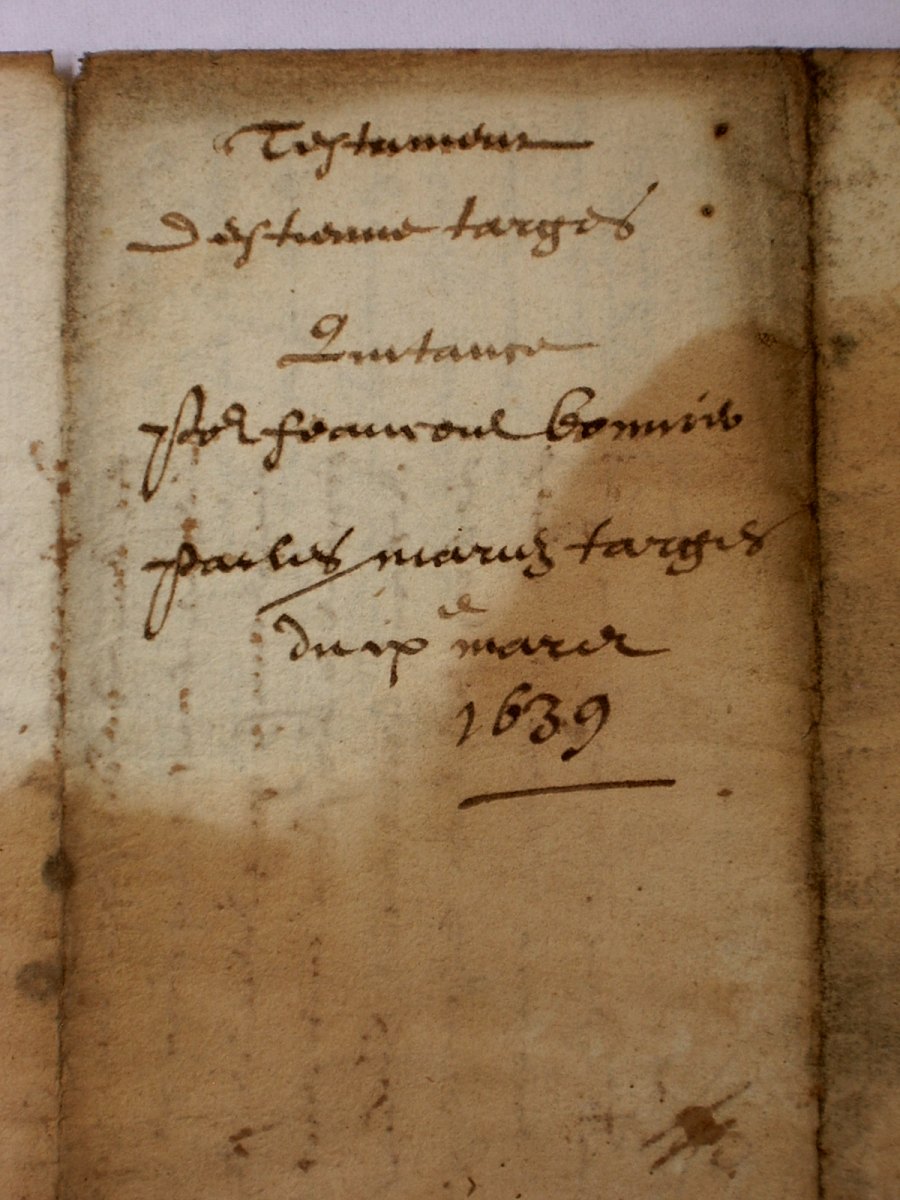 Testament
d'estienne targes
Quitance
po^r francois bonnio
par les mariez targes
du ix^e mars
1639